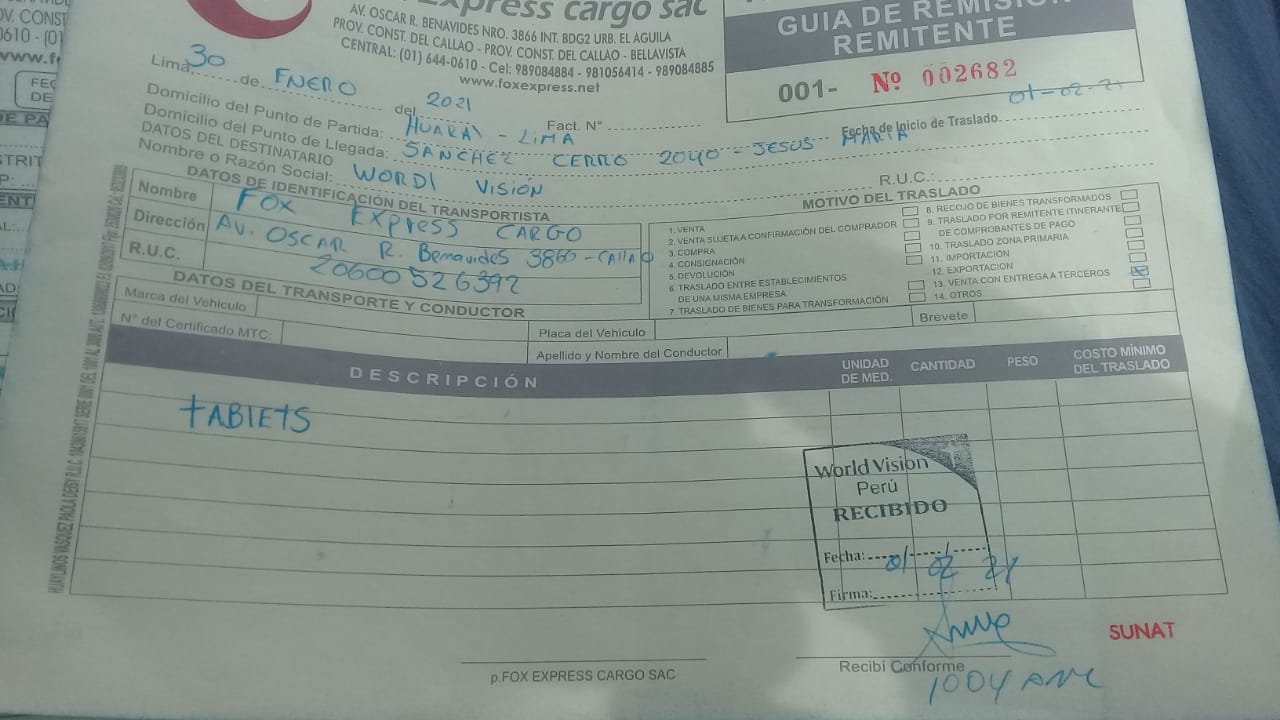 xpress cargo sac
AV. OSCAR R. BENAVIDES NRO. 3866 INT. BDG2 URB. EL AGUILA
PROV. CONST. DEL CALLAO - PROV. CONST. DEL CALLAO - BELLAVISTA
CENTRAL: (01) 644-0610 - Cel: 989084884 - 981056414 - 989084885
www.foxexpress.net
GUIA DE REMISIÓN
REMITENTE
001- Nº 002682
Lima, 30 de ENERO del 2021 Fact. N°
Fecha de Inicio de Traslado. 01-02-21
Domicilio del Punto de Partida: HUARAL - LIMA
Domicilio del Punto de Llegada: SANCHEZ CERRO 2040 - JESUS MARIA
DATOS DEL DESTINATARIO
Nombre o Razón Social: WORDL VISIÓN R.U.C.:
DATOS DE IDENTIFICACIÓN DEL TRANSPORTISTA
Nombre FOX EXPress CARGO
Dirección AV. OSCAR R. Benavides 3860 - CAllAO
R.U.C. 20600526392
MOTIVO DEL TRASLADO
1. VENTA
2. VENTA SUJETA A CONFIRMACIÓN DEL COMPRADOR
3. COMPRA
4. CONSIGNACIÓN
5. DEVOLUCIÓN
6. TRASLADO ENTRE ESTABLECIMIENTOS
DE UNA MISMA EMPRESA
7. TRASLADO DE BIENES PARA TRANSFORMACIÓN
8. RECOJO DE BIENES TRANSFORMADOS
9. TRASLADO POR REMITENTE ITINERANTE
DE COMPROBANTES DE PAGO
10. TRASLADO ZONA PRIMARIA
11. IMPORTACION
12. EXPORTACION
13. VENTA CON ENTREGA A TERCEROS
14. OTROS
DATOS DEL TRANSPORTE Y CONDUCTOR
Marca del Vehiculo
Placa del Vehiculo
Brevete
N° del Certificado MTC:
Apellido y Nombre del Conductor
DESCRIPCIÓN
UNIDAD
DE MED.
CANTIDAD
PESO
COSTO MÍNIMO
DEL TRASLADO
tABlEtS
World Vision
Perú
RECIBIDO
Fecha: 01 02 21
Firma:
p.FOX EXPRESS CARGO SAC
Recibí Conforme
SUNAT